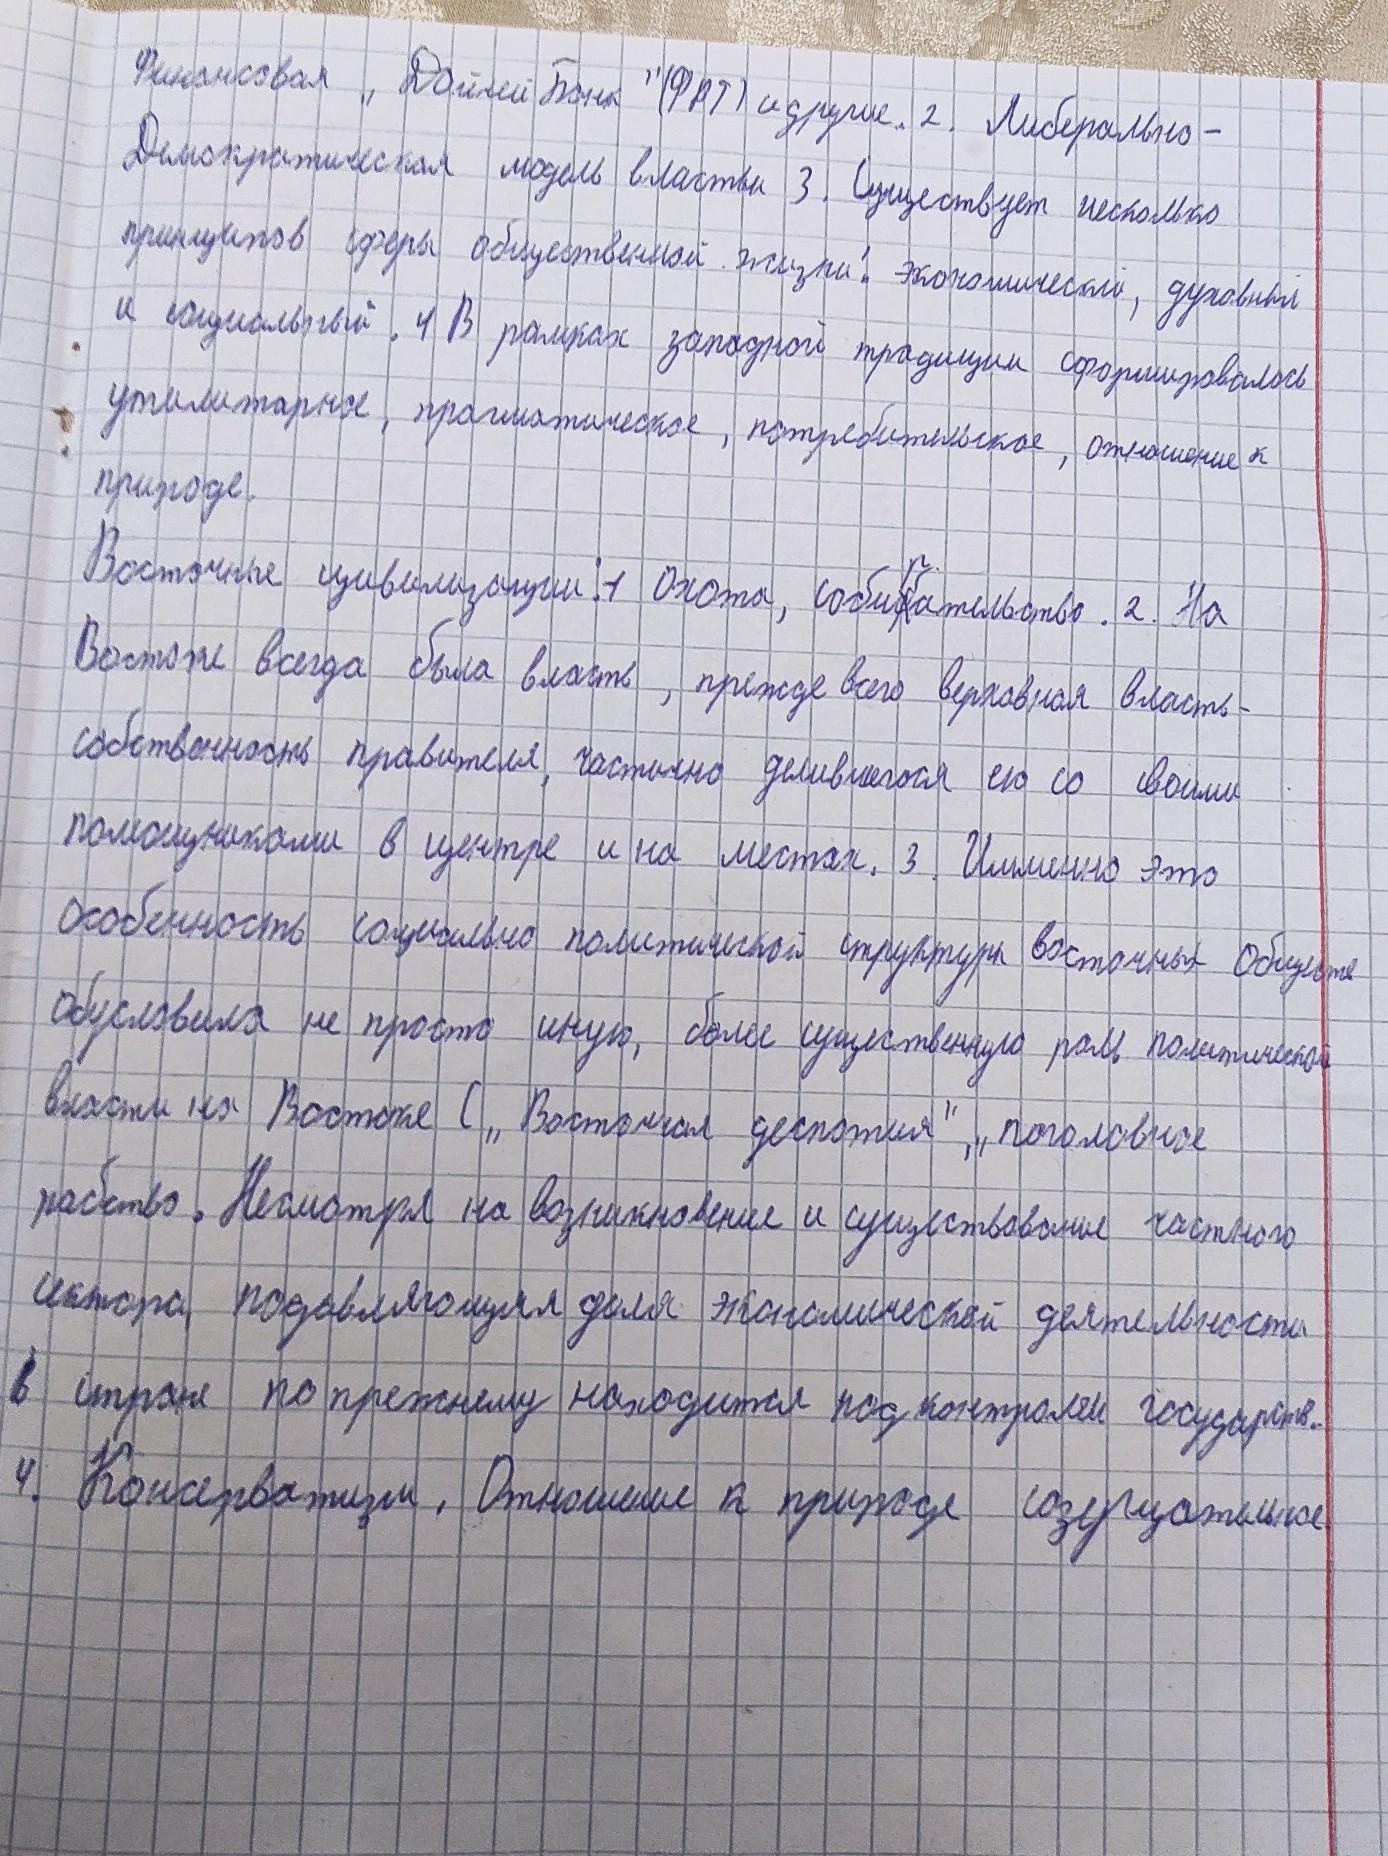 Финансовая „Дойчей Банк"(ФРГ) и другие. 2. Либерально-
Демократическая модель власти 3. Существует несколько
принципов сферы общественной жизни: экономический, духовный
и социальный. 4 В рамках западной традиции сформировалось
утилитарное, прагматическое, потребительское, отношение к
природе.
Восточные цивилизации: 1 Охота, собирательство. 2. На
Востоке всегда была власть, прежде всего верховная власть-
собственность правителя, частично делившегося ею со своими
помощниками в центре и на местах. 3. Имменно это
особенность социально политической структуры восточных обществ
обусловила не просто иную, более существенную роль политической
власти на Востоке („Восточная деспотия", „поголовное
рабство. Несмотря на возникновение и существование частного
сектора, подавляющая доля экономической деятельности
в стране по прежнему находится под контролем государств.
4. Консерватизм. Отношение к природе созерцательное.